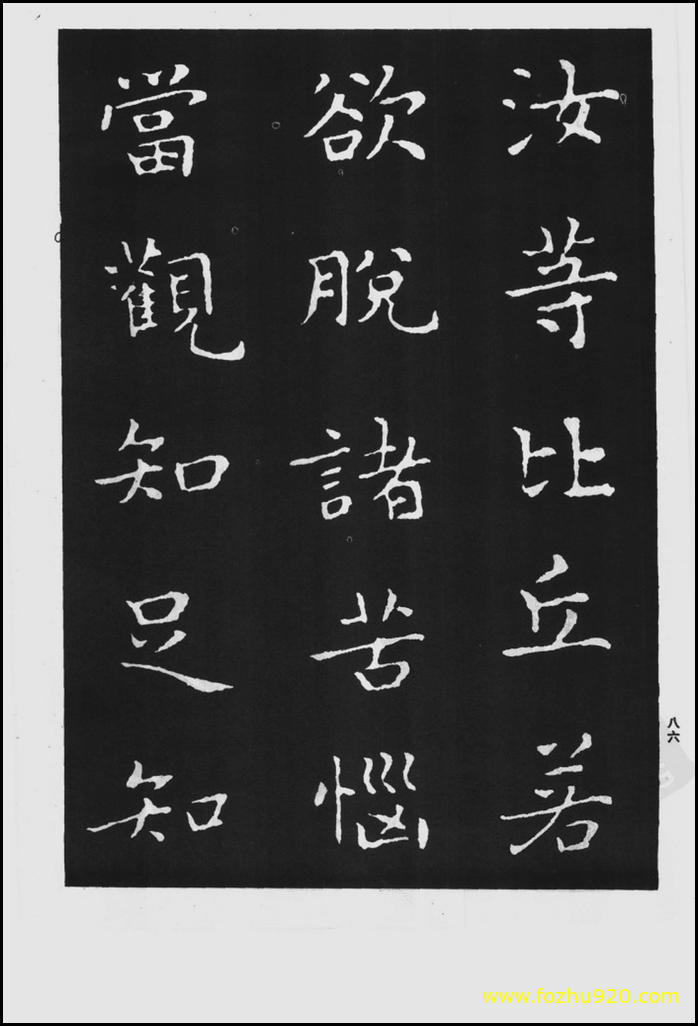 汝等比丘若
欲脫諸苦惱
當觀知足知
八六
www.fozhu920.com